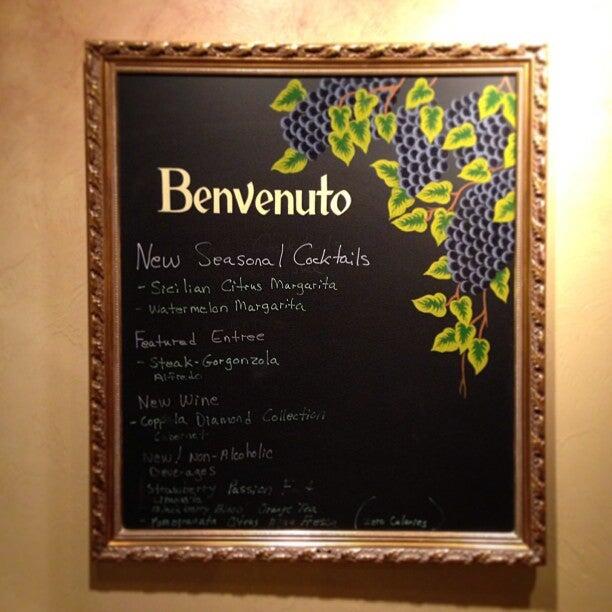 Benvenuto
New Seasonal Cocktails
- Sicilian Citrus Margarita
- Watermelon Margarita
Featured Entree
- Steak-Gorgonzola
Alfredo
New Wine
- Coppola Diamond Collection
Cabernet
New! Non-Alcoholic
Beverages
- Strawberry Passion Fruit
Limonata
- Blackberry Orange Tea
- Pomegranate Citrus Fresco (Zero Calories)